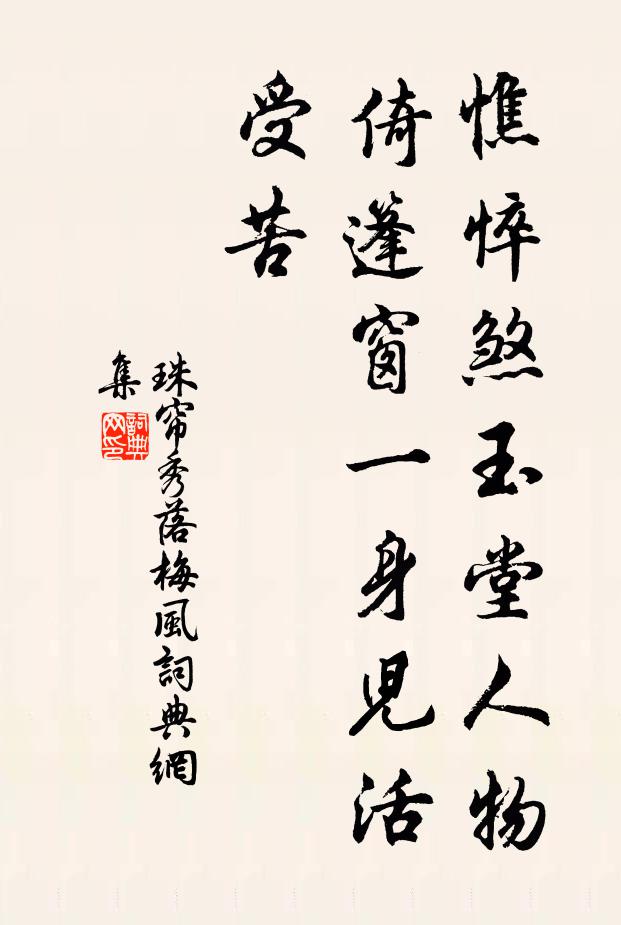 憔悴煞玉堂人物
倚蓬窗一身兒活
受苦
珠帘秀落梅風詞典網
集
詞典
网印